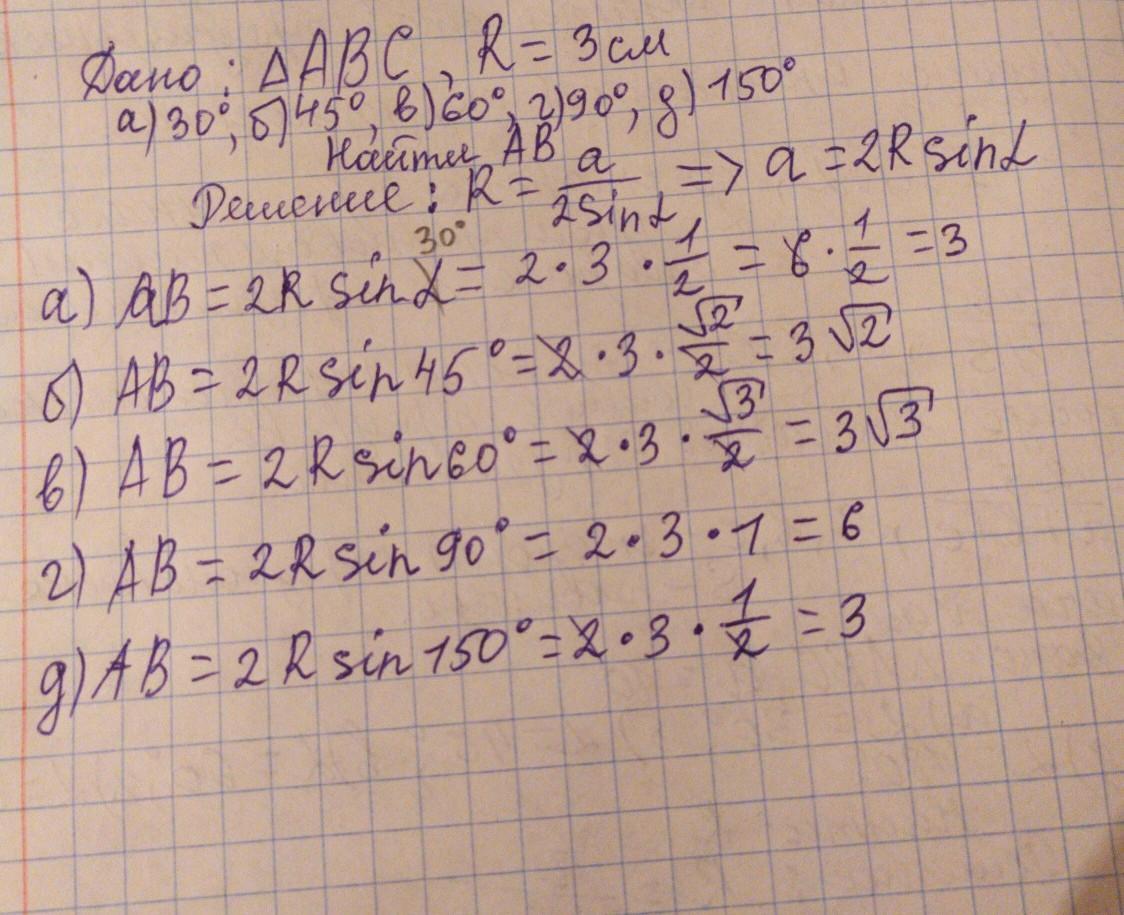 Дано: ΔABC, R = 3см
а) 30°, б) 45°, в) 60°, г) 90°, д) 150°
Найти AB
Решение: R = a/(2sinα) => a = 2R sinα
а) AB = 2R sin 30° = 2·3·1/2 = 6·1/2 = 3
б) AB = 2R sin 45° = 2·3·√2/2 = 3√2
в) AB = 2R sin 60° = 2·3·√3/2 = 3√3
г) AB = 2R sin 90° = 2·3·1 = 6
д) AB = 2R sin 150° = 2·3·1/2 = 3